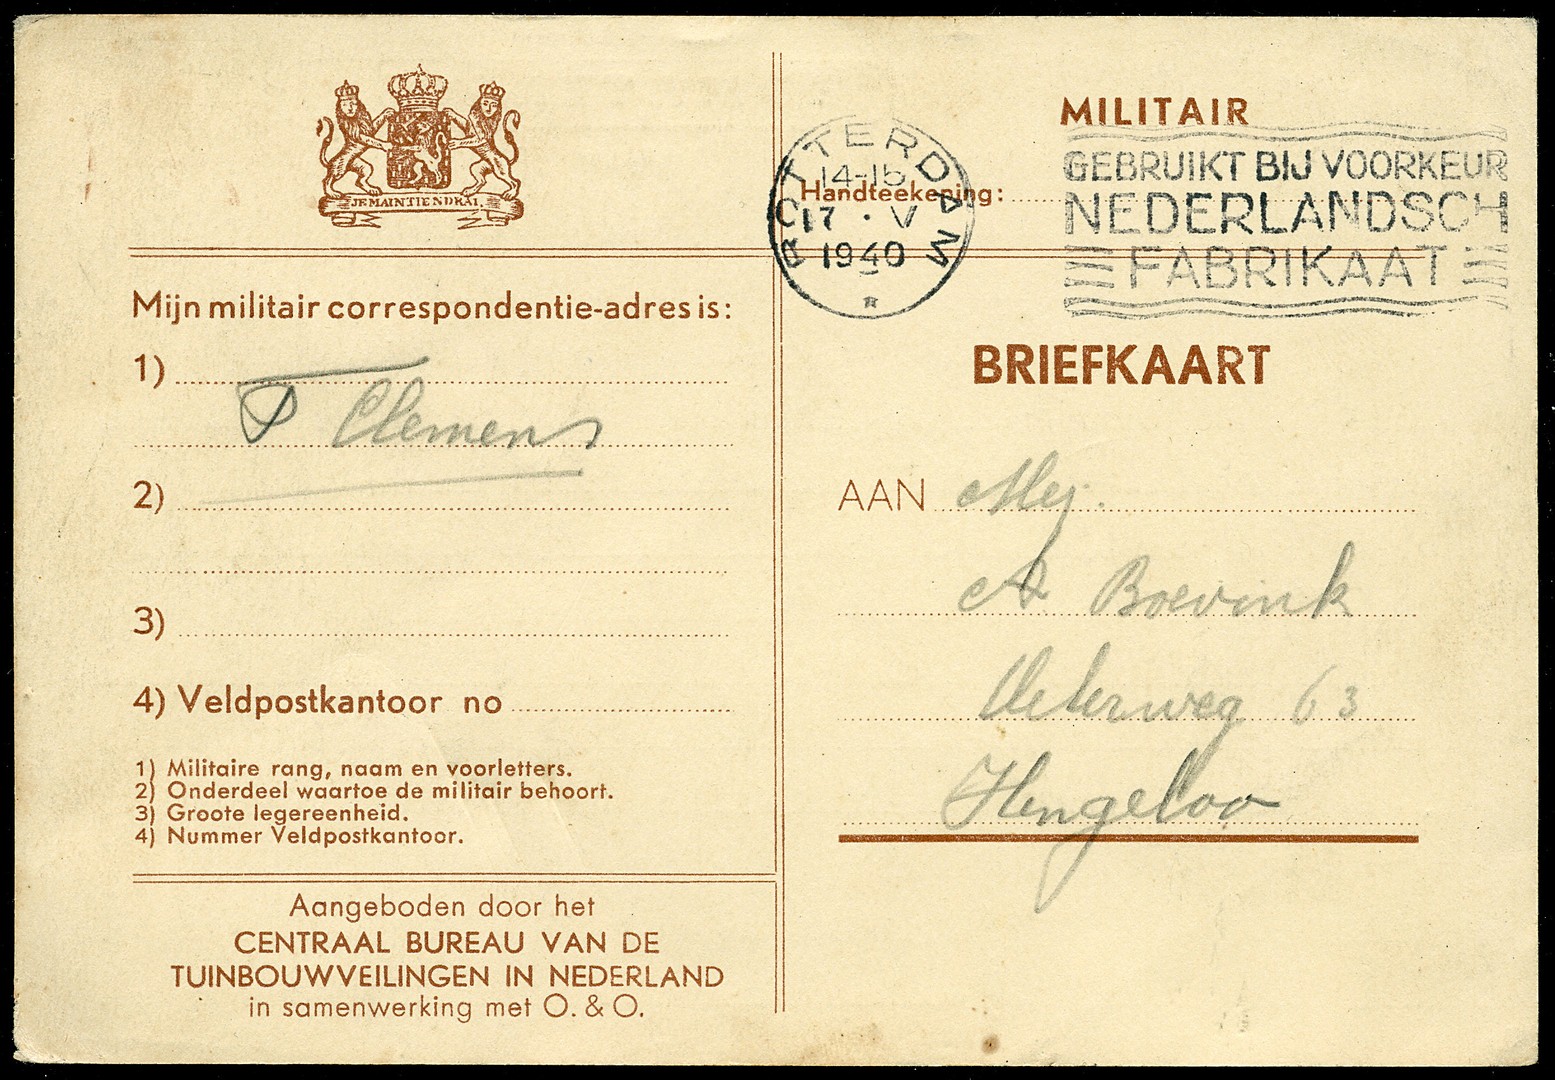 JE MAINTIENDRAI.
Mijn militair correspondentie-adres is:
1)
P Clemens
2)
3)
4) Veldpostkantoor no
1) Militaire rang, naam en voorletters.
2) Onderdeel waartoe de militair behoort.
3) Groote legereenheid.
4) Nummer Veldpostkantoor.
Aangeboden door het
CENTRAAL BUREAU VAN DE
TUINBOUWVEILINGEN IN NEDERLAND
in samenwerking met O. & O.
MILITAIR
Handteekening:
ROTTERDAM
14-15
17 · V
1940
GEBRUIKT BIJ VOORKEUR
NEDERLANDSCH
FABRIKAAT
BRIEFKAART
AAN Mej.
A Boevink
Deterweg 63
Hengeloo